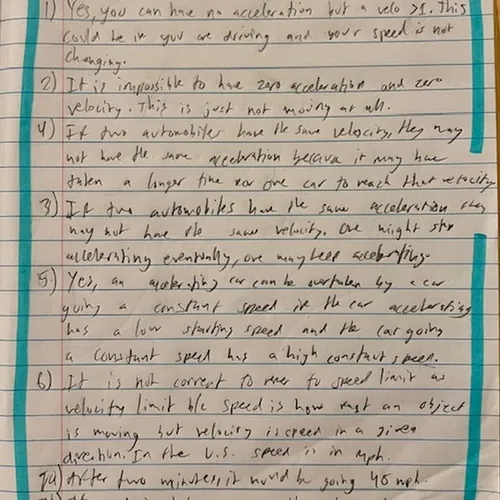 1) Yes, you can have no acceleration but a velo >1. This
could be if you are driving and your speed is not
changing.
2) It is impossible to have zero acceleration and zero
velocity. This is just not moving at all.
4) If two automobiles have the same velocity, they may
not have the same acceleration because it may have
taken a longer time for one car to reach that velocity
3) If two automobiles have the same acceleration they
may not have the same velocity. One might stop
accelerating eventually, one may keep accelerating.
5) Yes, an accelerating car can be overtaken by a car
going a constant speed if the car accelerating
has a low starting speed and the car going
a constant speed has a high constant speed.
6) It is not correct to refer to speed limit as
velocity limit b/c speed is how fast an object
is moving but velocity is speed in a given
direction. In the U.S. speed is in mph.
7a) After two minutes, it would be going 40 mph.